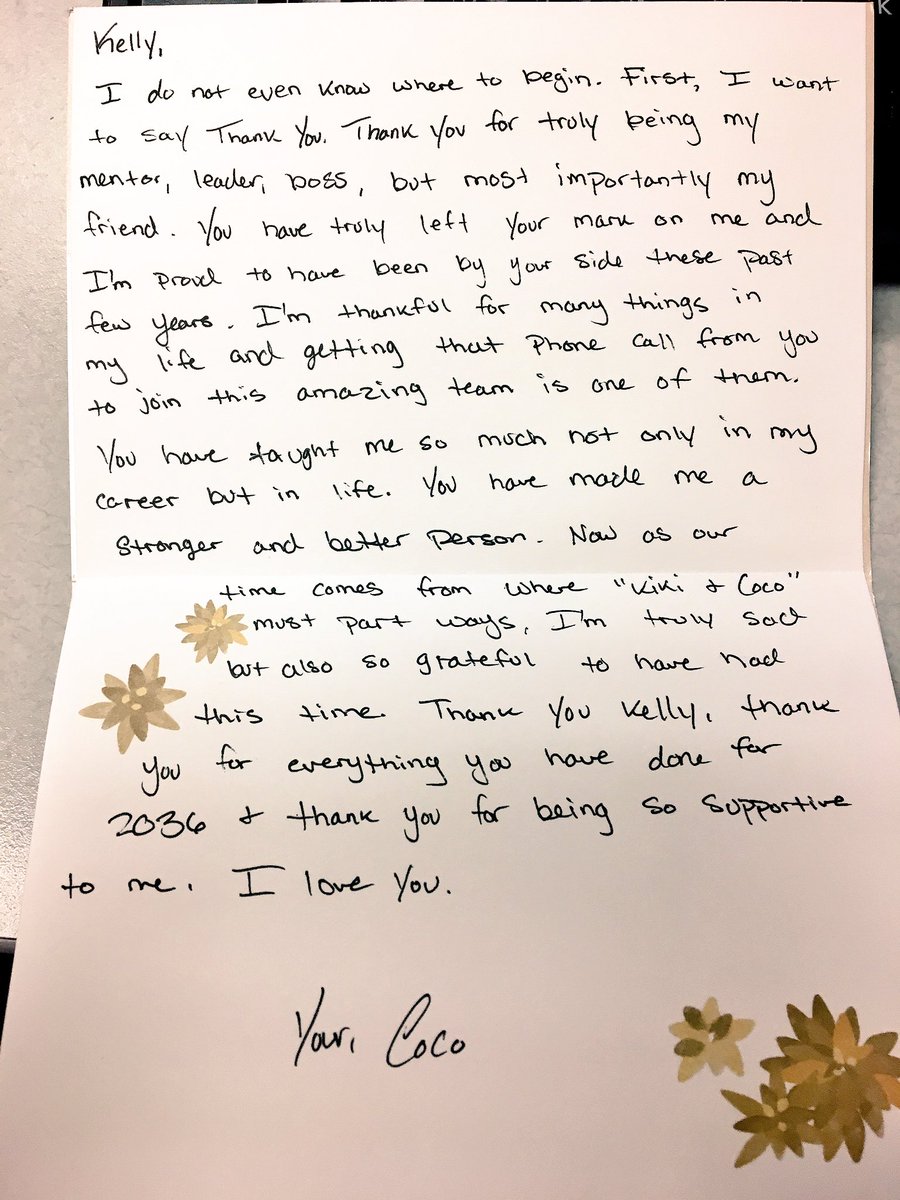 Kelly,
I do not even know where to begin. First, I want
to say Thank You. Thank you for truly being my
mentor, leader, boss, but most importantly my
friend. You have truly left your mark on me and
I'm proud to have been by your side these past
few years. I'm thankful for many things in
my life and getting that phone call from you
to join this amazing team is one of them.
You have taught me so much not only in my
career but in life. You have made me a
stronger and better person. Now as our
time comes from where "Kiki & Coco"
must part ways, I'm truly sad
but also so grateful to have had
this time. Thank you Kelly, thank
you for everything you have done for
2036 & thank you for being so supportive
to me. I love you.
Your, Coco
K